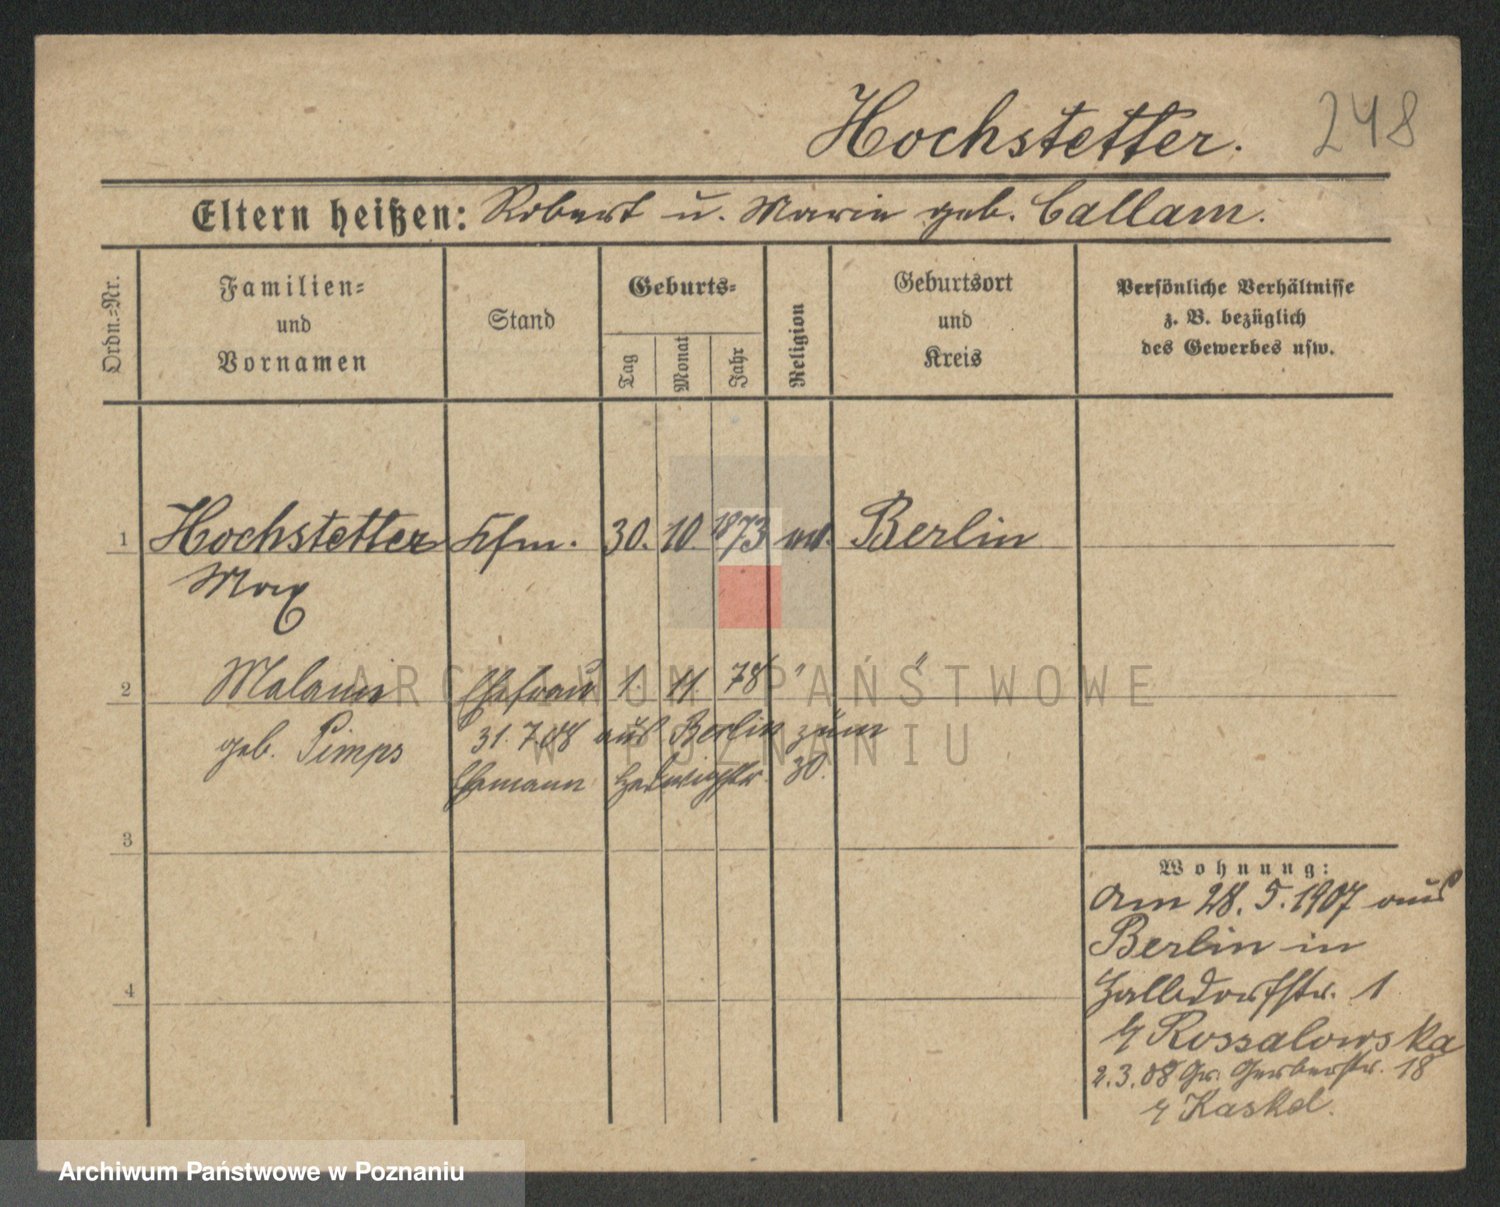 Hochstetter. 248
Eltern heißen: Robert u. Marie geb. Callam.
Ordn.=Nr.
Familien=
und
Vornamen
Stand
Geburts=
Tag
Monat
Jahr
Religion
Geburtsort
und
Kreis
Persönliche Verhältnisse
z. B. bezüglich
des Gewerbes usw.
1 Hochstetter Kfm. 30. 10. 1873 ev. Berlin
Max
2 Melanie Ehefrau 1. 11. 78 " "
geb. Pimps
31.7.08 aus Berlin zum
Ehemann Hedwigstr. 30.
3
4
Wohnung:
Am 28. 5. 1907 aus
Berlin in
Halbdorfstr. 1
b/ Rossalowska
2.3.08 Gr. Gerberstr. 18
b/ Kaskel.
ARCHIWUM PAŃSTWOWE
W POZNANIU
Archiwum Państwowe w Poznaniu